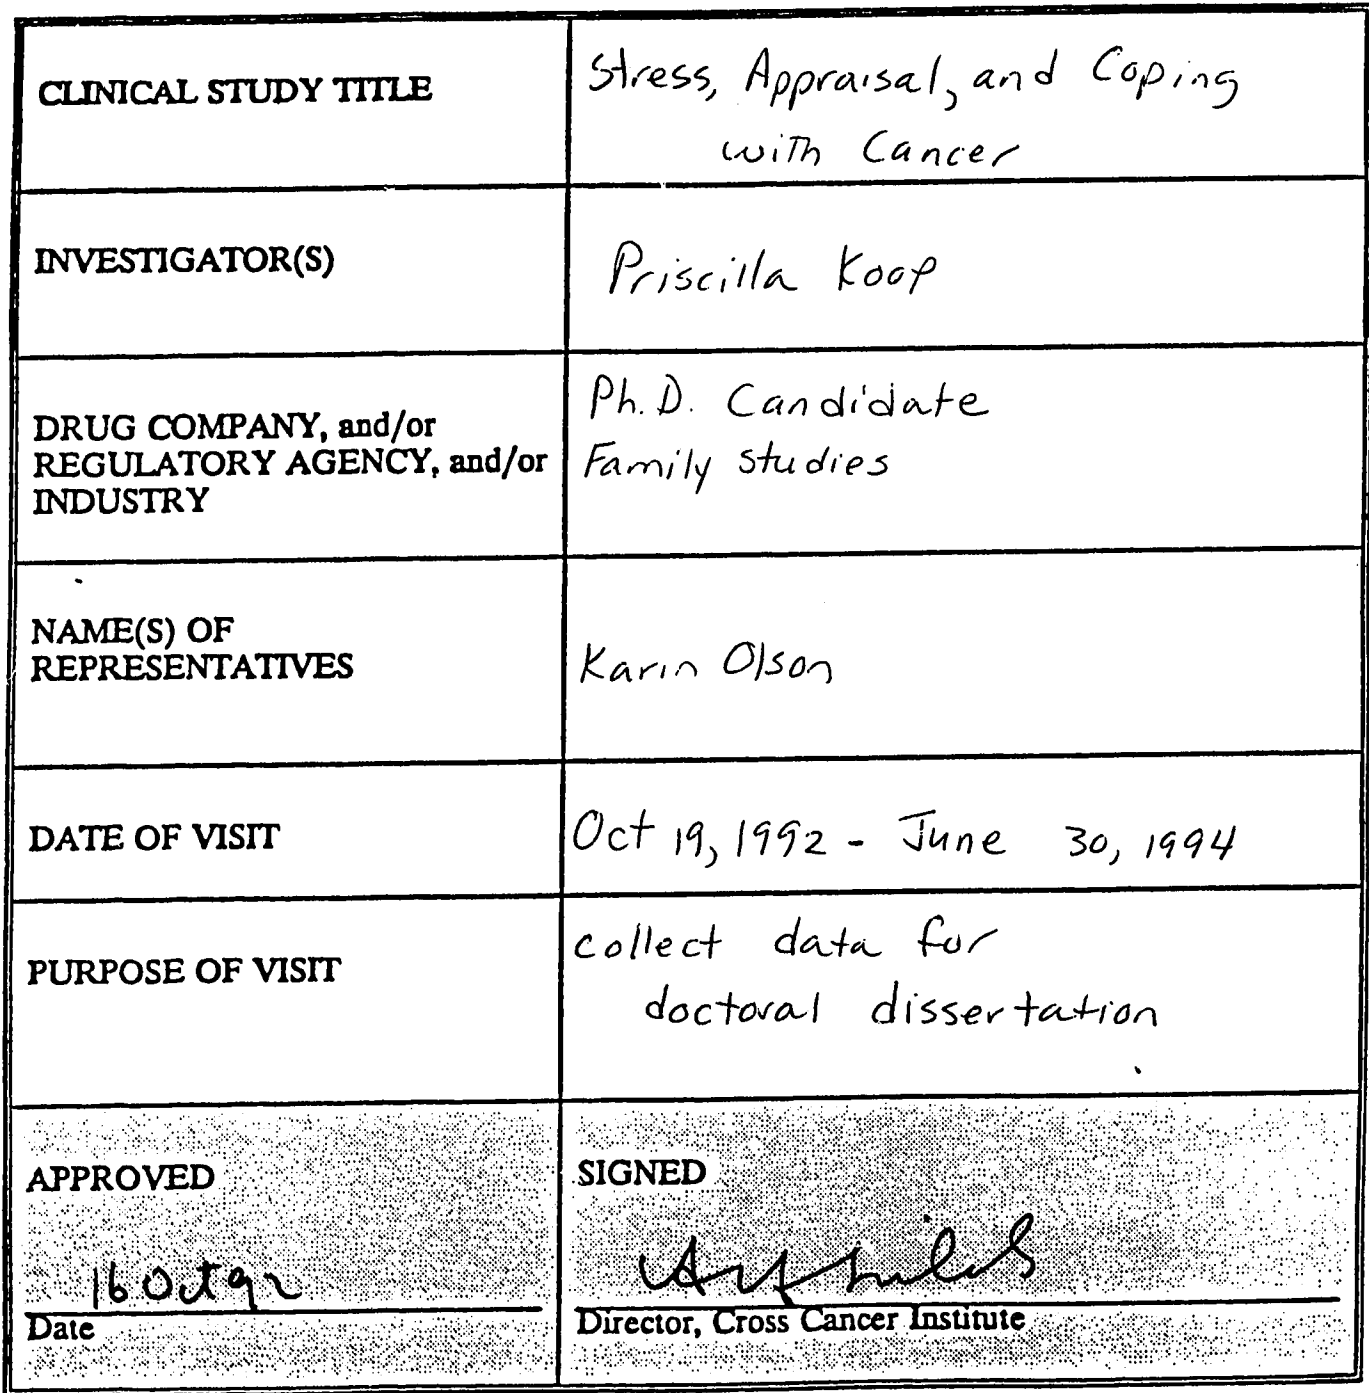 CLINICAL STUDY TITLE
Stress, Appraisal, and Coping
with Cancer
INVESTIGATOR(S)
Priscilla Koop
DRUG COMPANY, and/or
REGULATORY AGENCY, and/or
INDUSTRY
Ph.D. Candidate
Family Studies
NAME(S) OF
REPRESENTATIVES
Karin Olson
DATE OF VISIT
Oct 19, 1992 - June 30, 1994
PURPOSE OF VISIT
collect data for
doctoral dissertation
APPROVED
16 Oct 92
Date
SIGNED
Director, Cross Cancer Institute